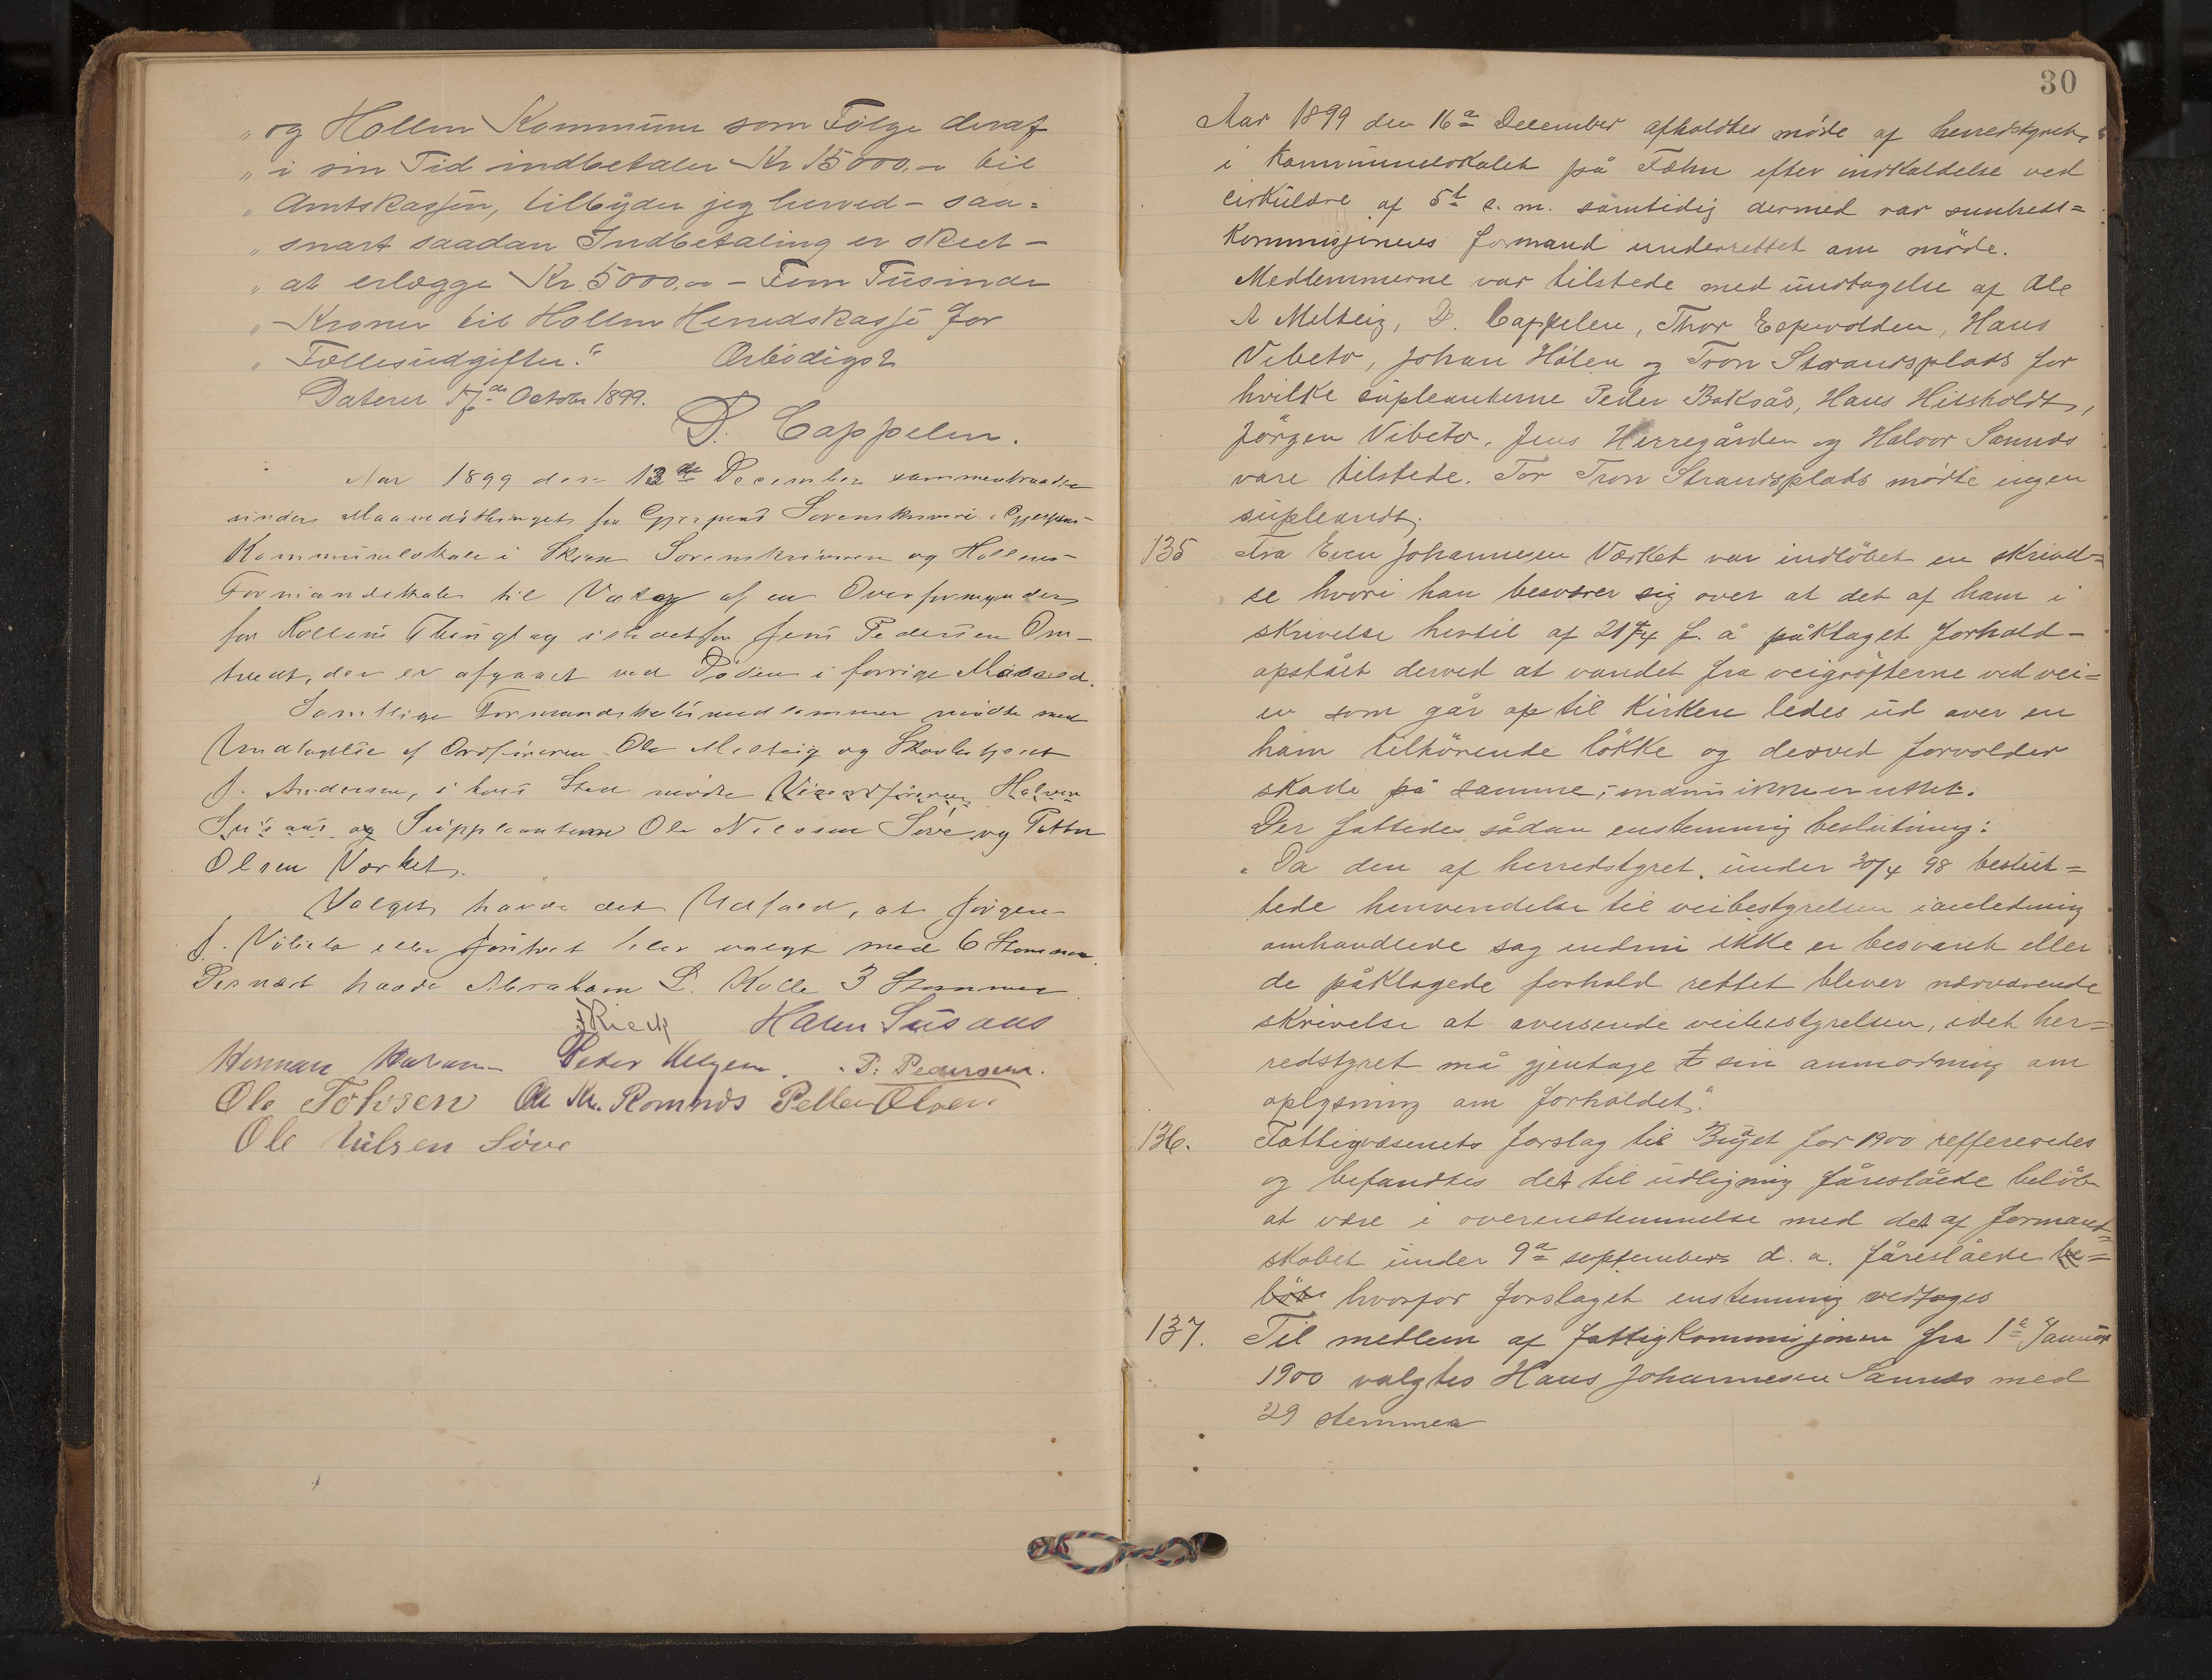 „og Hollen Kommune som Følge deraf
„i sin Tid indbetaler Kr 15000.00 til
„Amtskassen, tilbyder jeg herved – saa=
„snart saadan Indbetaling er skeet –
„at erlægge Kr. 5000.00 – Fem Tusinde
„Kroner til Hollen Herredskasse for
„Fællesudgifter.“ Ærbødigst
Dateret October 1899.
D. Cappelen.
Aar 1899 den 13de December sammentraadte
under Maanedsthinget for Gjerpens Sorenskriveri i Gjerpens
Kommunelokale i Skien Sorenskriveren og Hollens
Formandskab til Valg af en Overformynder
for Hollens Thinglag istedetfor Jens Pedersen Om-
tvedt, der er afgaaet ved Døden i forrige Maaned.
Samtlige Formandskabsmedlemmer mødte med
Undtagelse af Ordføreren Ole Melteig og
J. Andersen, i hvis Sted mødte Viceordfører Halvor
Susaas og Suppleanterne Ole Nilssen Søve og Petter
Olsen Værket.
Valget havde det Udfald, at Jørgen
J. Vibeto blev valgt med 6 Stemmer.
Dernæst havde Abraham L. Kolle 3 Stemmer
Rieck Halvor Susaas
Herman Peder Helgen. P. Pedersen.
Ole Tofsen Ole Kr. Romnes Petter Olsen
Ole Nilsen Søve
30
Aar 1899 den 16de December afholdtes møde af herredstyret
i Kommunelokalet på Fæhn efter indkaldelse ved
cirkulære af 5te d. m. samtidig dermed var sunheds=
kommisjonens formand underrettet om møde.
Medlemmerne var tilstede med undtagelse af Ole
A Melteig, D. Cappelen, Thor Espevolden, Hans
Vibeto, Johan Hålen og Tron Strandsplads for
hvilke supleanterne Peder Baksås, Hans Hisholdt,
Jörgen Vibeto, Jens Herregården og Halvor Sannes
vare tilstede. For Tron Strandsplads mødte ingen
supleandt.
135 Fra Even Johannesen Værket var indløbet en skrivel=
se hvori han besværer sig over at det af ham i
skrivelse hertil af 21/4 f. å påklaget forhold –
opstået derved at vandet fra veigrøfterne ved vei=
en som går op til kirken ledes ud over en
ham tilhørende løkke og derved forvolder
skade på samme, endnu ikke er rettet.
Der fattedes sådan enstemmig beslutning:
„Da den af herredstyret under 30/4 98 beslut=
tede henvendelse til veibestyrelsen i anledning
omhandlede sag endnu ikke er besvaret eller
de påklagede forhold rettet bliver nærværende
skrivelse at oversende veibestyrelsen, idet her=
redstyret må gjentage sin anmodning om
oplysning om forholdet.“
136. Fattigvæsenets forslag til Budget for 1900 reffereredes
og befandtes det til udligning føreslåede beløb
at være i overenstemmelse med det af formand=
skabet under 9de september d. a. føreslåede be=
løb hvorfor forslaget enstemmig vedtoges
137. Til medlem af fattigkommisjonen fra 1te Januar
1900 valgtes Hans Johannesen Sannes med
29 stemmer